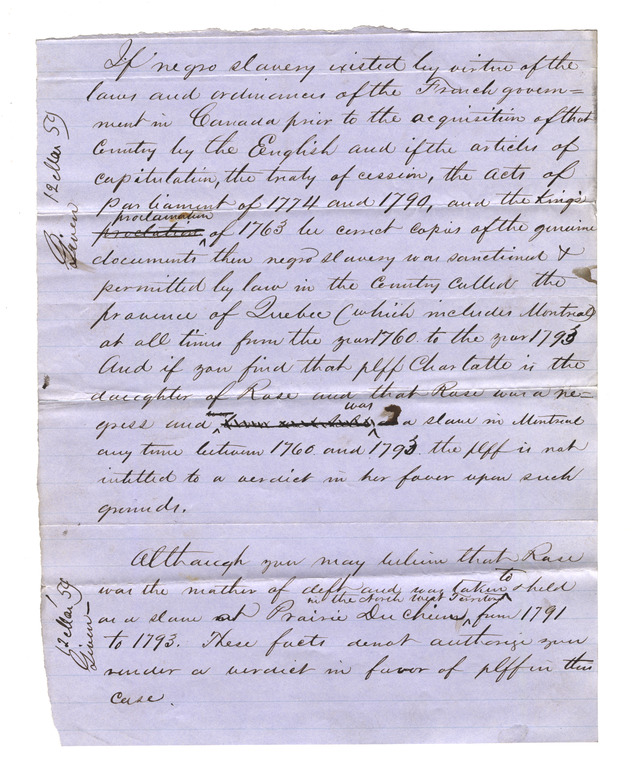 If negro slavery existed by virtue of the
laws and ordinances of the French govern=
ment in Canada prior to the acquisition of that
Country by the English and if the articles of
capitulation, the treaty of cession, the acts of
Parliament of 1774 and 1790, and the King's
proclamation
of 1763 be correct copies of the genuine
documents then negro slavery was sanctioned &
permitted by law in the Country called the
province of Quebec (which includes Montreal)
at all times from the year 1760 to the year 1793
And if you find that plff Charlotte is the
daughter of Rose and that Rose was a ne=
gress and was a slave in Montreal
any time between 1760 and 1793 the plff is not
intitled to a verdict in her favor upon such
grounds.
Given 12 Mar 59
Although you may believe that Rose
was the mother of deft and was taken to & held
in the North West Territory
as a slave at Prairie Du Chien, from 1791
to 1793. These facts do not authorize you
render a verdict in favor of plff in this
case.
12 Mar 59
Given